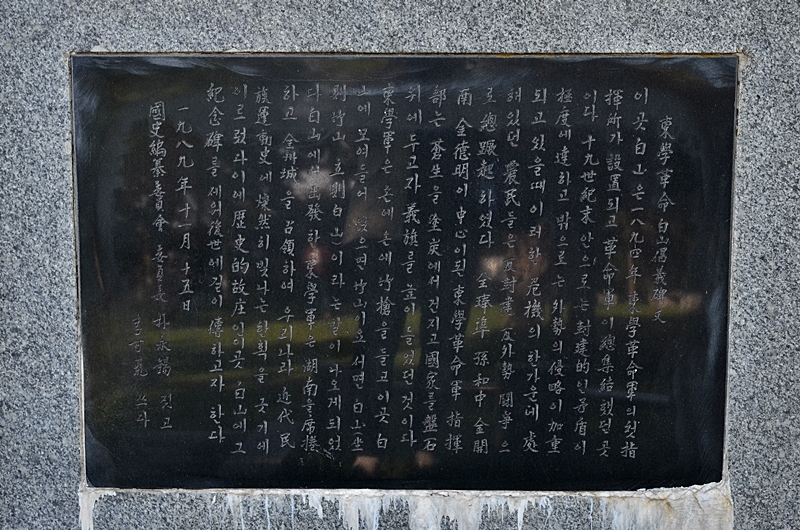 東學革命 白山倡義碑文
이곳 白山은 一八九四年 東學革命軍의 첫 指
揮所가 設置되고 革命軍이 總集結했던 곳
이다 十九世紀末 안으로는 封建的인 矛盾이
極度에 達하고 밖으로는 外勢의 侵略이 加重
되고 있을 때 이러한 危機의 한가운데 處
해있던 農民들은 反封建 反外勢 鬪爭으
로 總蹶起하였다 全琫準 孫和中 金開
南 金德明이 中心이 된 東學革命軍 指揮
部는 蒼生을 塗炭에서 건지고 國家를 盤石
위에 두고자 義旗를 높이 들었던 것이다
東學軍은 손에 손에 竹槍을 들고 이곳 白
山에 모여들어 앉으면 竹山이요 서면 白山 坐
則竹山 立則白山이라는 말이 나오게 되었
다 白山에서 出發한 東學軍은 湖南을 席捲
하고 全州城을 占領하여 우리나라 近代 民
族運動史에 燦然히 빛나는 한 획을 긋기에
이르렀다 이에 歷史的 故庄인 이곳 白山에 그
紀念碑를 세워 後世에 길이 傳하고자 한다
一九八九年 十一月 十五日
國史編纂委員會 委員長 朴永錫 짓고
쓰다